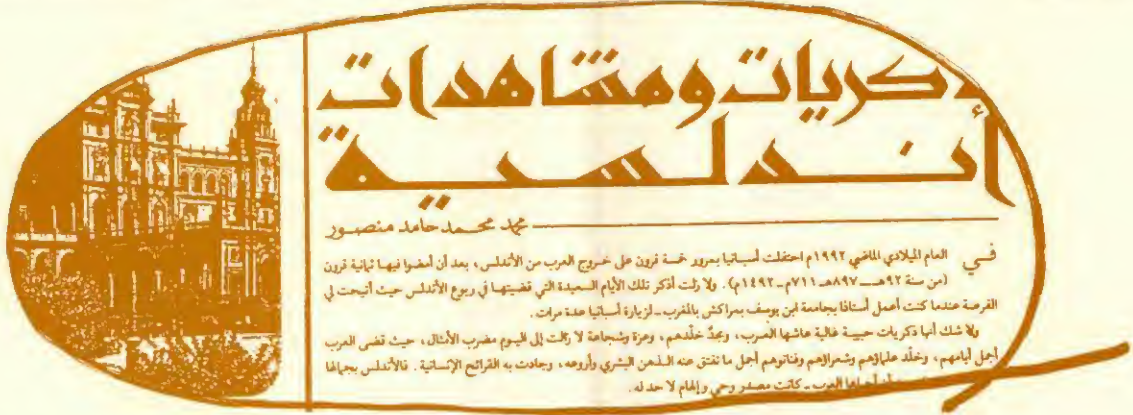 ذكريات ومشاهدات
أندلسية
محمد محمد حامد منصور
في العام الميلادي الماضي ١٩٩٢م احتفلت أسبانيا بمرور خمسة قرون على خروج العرب من الأندلس، بعد أن أمضوا فيها ثمانية قرون
(من سنة ٩٢هـ ــ ٨٩٧هـ ٧١١م ــ ١٤٩٢م). ولا زلت أذكر تلك الأيام السعيدة التي قضيتها في ربوع الأندلس حيث أتيحت لي
الفرصة عندما كنت أعمل أستاذا بجامعة ابن يوسف بمراكش بالمغرب ـ لزيارة أسبانيا عدة مرات.
ولا شك أنها ذكريات حبيبة غالية عاشها العرب، ومجدٌ خلّدهم، وعزة وشجاعة لا زالت إلى اليوم مضرب الأمثال، حيث قضى العرب
أجمل أيامهم، وخلّد علماؤهم وشعراؤهم وفنانوهم أجمل ما تفتق عنه الذهن البشري وأروعه، وجادت به القرائح الإنسانية. فالأندلس بجمالها
العرب ـ كانت مصدر وحي وإلهام لا حد له.